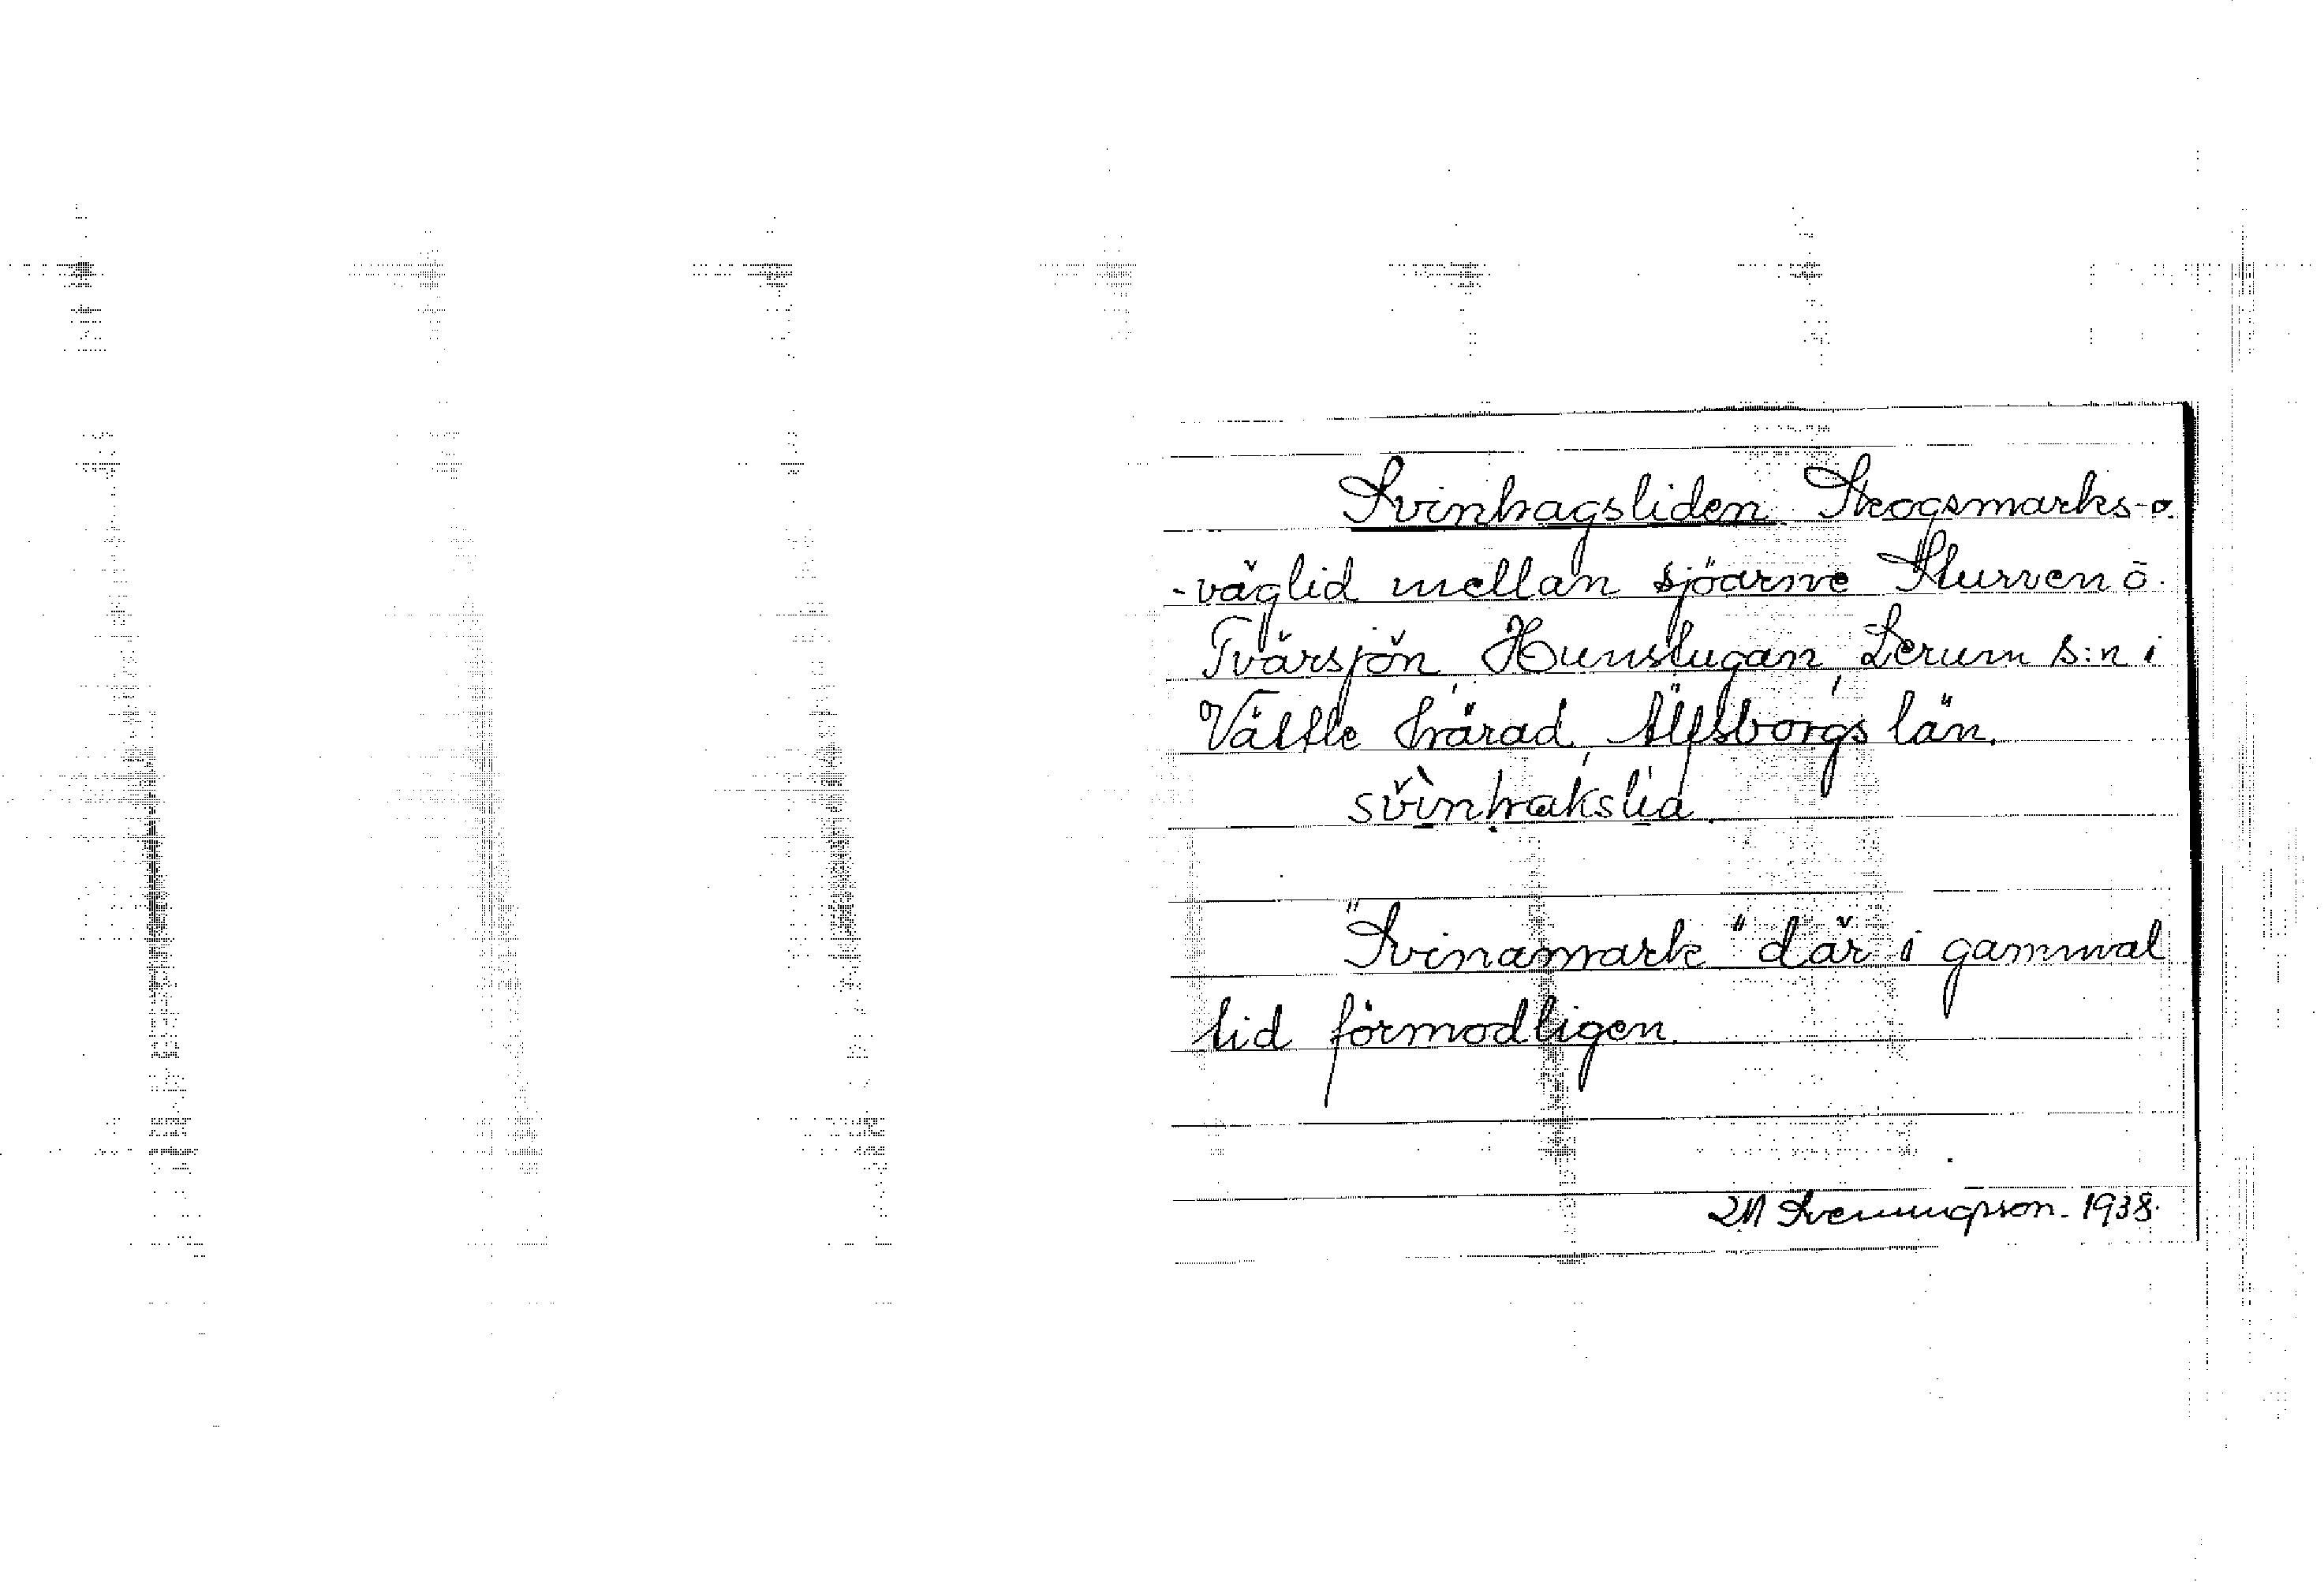 Svinhagsliden. Skogsmarks- o.
-väglid mellan sjöarne Sturven o.
Tvärsjön, Hunstugan, Lerum s:n i
Vättle härad, Älfsborgs län.
svìnhakslìa.
"Svinamark" där i gammal
tid förmodligen.
Svenungson. 1938.